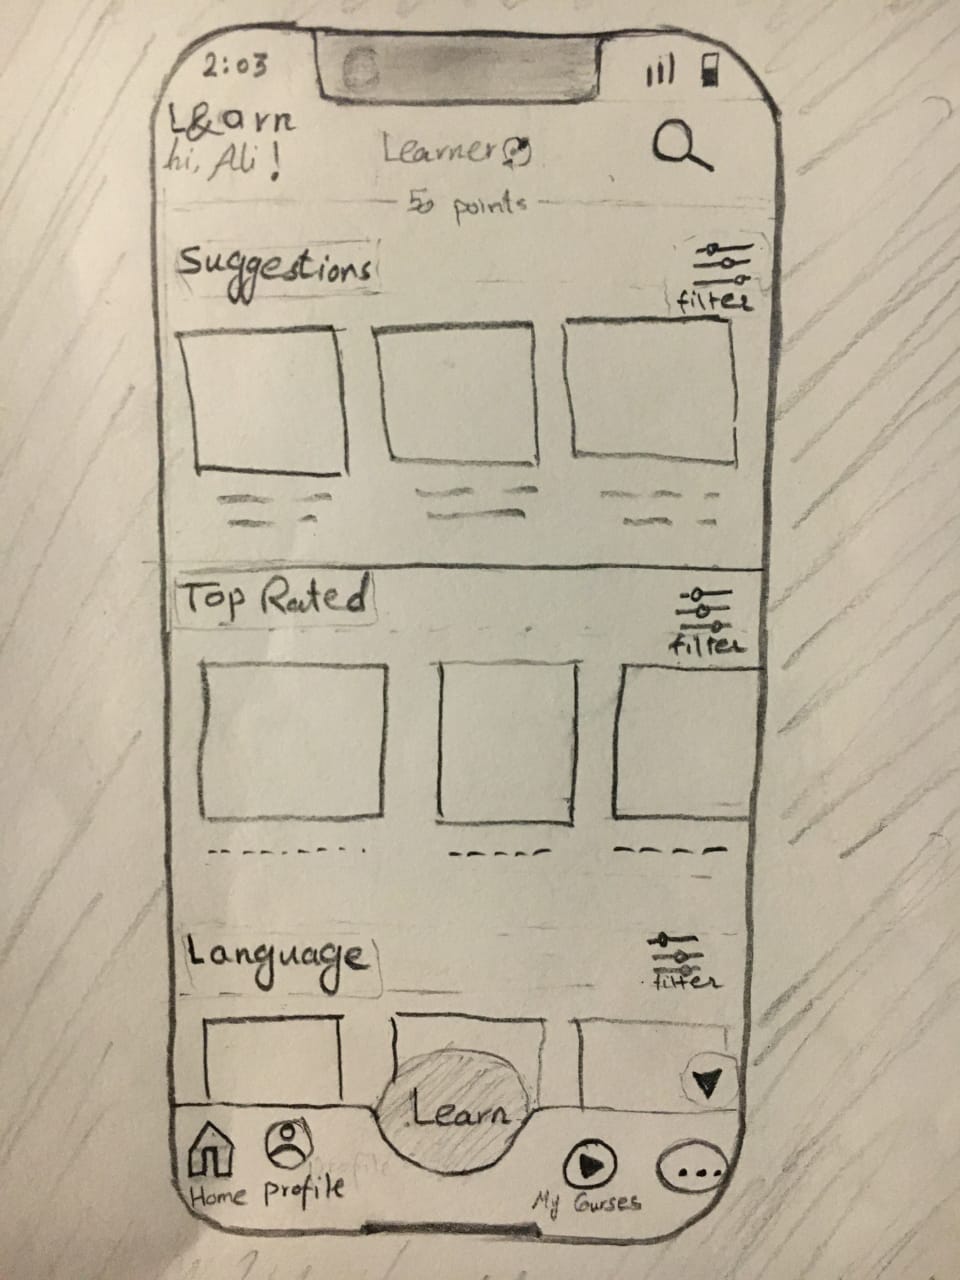 2:03
L&arn
hi, Ali!
Learner
50 points
Suggestions
filter
Top Rated
filter
Language
filter
Learn
Home
profile
profile
My Courses